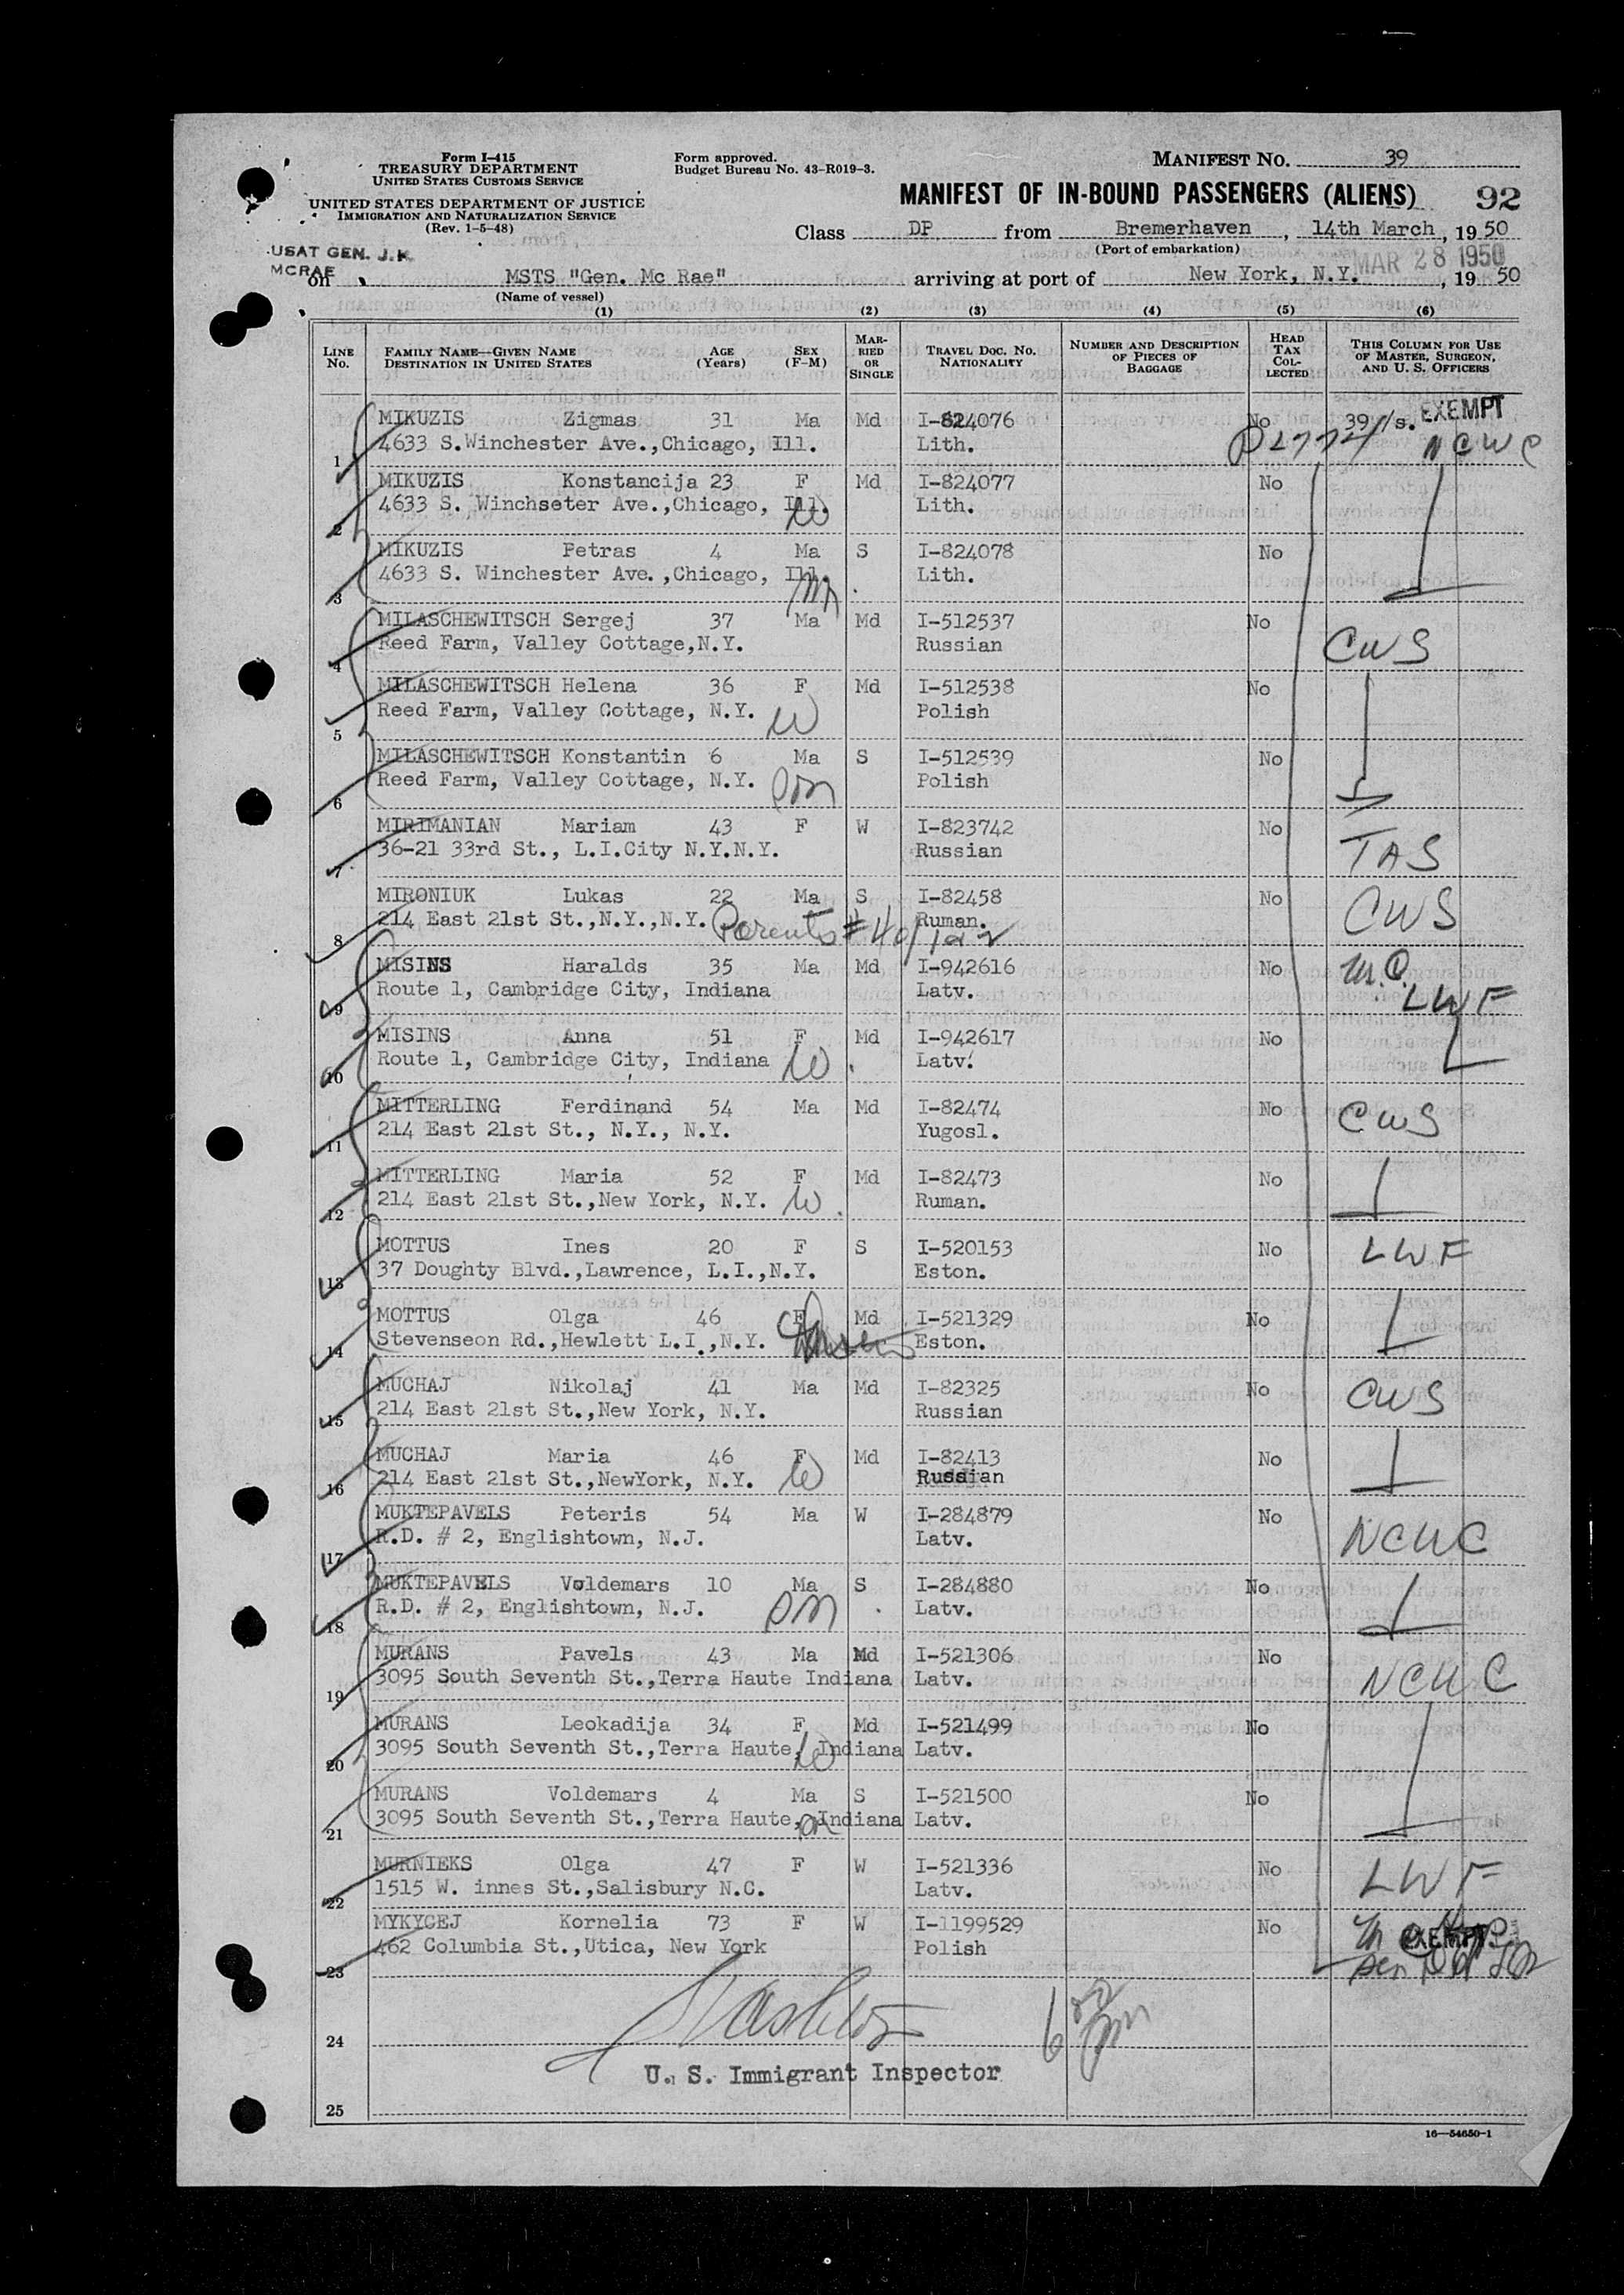 Form I-415
TREASURY DEPARTMENT
UNITED STATES CUSTOMS SERVICE
UNITED STATES DEPARTMENT OF JUSTICE
IMMIGRATION AND NATURALIZATION SERVICE
(Rev. 1-5-48)
Form approved.
Budget Bureau No. 43-R019-3.
MANIFEST NO. 39
MANIFEST OF IN-BOUND PASSENGERS (ALIENS) 92
Class DP from Bremerhaven, 14th March, 1950
(Port of embarkation)
USAT GEN. J.H.
MCRAE
on MSTS "Gen. Mc Rae" arriving at port of New York, N.Y. MAR 28 1950, 1950
(Name of vessel)
(1) (2) (3) (4) (5) (6)
LINE No. FAMILY NAME—GIVEN NAME DESTINATION IN UNITED STATES AGE (Years) SEX (F-M) MARRIED OR SINGLE TRAVEL DOC. NO. NATIONALITY NUMBER AND DESCRIPTION OF PIECES OF BAGGAGE HEAD TAX COLLECTED THIS COLUMN FOR USE OF MASTER, SURGEON, AND U. S. OFFICERS
MIKUZIS Zigmas 31 Ma Md I-824076 No 39 /s. EXEMPT
1 4633 S.Winchester Ave.,Chicago, Ill. Lith. PL774 NCWC
MIKUZIS Konstancija 23 F Md I-824077 No
2 4633 S. Winchseter Ave.,Chicago, Ill. W Lith.
MIKUZIS Petras 4 Ma S I-824078 No
3 4633 S. Winchester Ave.,Chicago, Ill. Lith.
MILASCHEWITSCH Sergej 37 Ma Md I-512537 No
4 Reed Farm, Valley Cottage,N.Y. Russian CWS
MILASCHEWITSCH Helena 36 F Md I-512538 No
5 Reed Farm, Valley Cottage, N.Y. W Polish
MILASCHEWITSCH Konstantin 6 Ma S I-512539 No
6 Reed Farm, Valley Cottage, N.Y. Son Polish
MIRIMANIAN Mariam 43 F W I-823742 No
7 36-21 33rd St., L.I.City N.Y.N.Y. Russian TAS
MIRONIUK Lukas 22 Ma S I-82458 No
8 214 East 21st St.,N.Y.,N.Y. Parents #40/1&2 Ruman. CWS
MISINS Haralds 35 Ma Md I-942616 No M.C.
9 Route 1, Cambridge City, Indiana Latv. LWF
MISINS Anna 51 F Md I-942617 No
10 Route 1, Cambridge City, Indiana W. Latv.
MITTERLING Ferdinand 54 Ma Md I-82474 No CWS
11 214 East 21st St., N.Y., N.Y. Yugosl.
MITTERLING Maria 52 F Md I-82473 No
12 214 East 21st St.,New York, N.Y. W. Ruman.
MOTTUS Ines 20 F S I-520153 No LWF
13 37 Doughty Blvd.,Lawrence, L.I.,N.Y. Eston.
MOTTUS Olga 46 F Md I-521329 No
14 Stevenseon Rd.,Hewlett L.I.,N.Y. Eston.
MUCHAJ Nikolaj 41 Ma Md I-82325 No CWS
15 214 East 21st St.,New York, N.Y. Russian
MUCHAJ Maria 46 F Md I-82413 No
16 214 East 21st St.,NewYork, N.Y. W Russian
MUKTEPAVELS Peteris 54 Ma W I-284879 No
17 R.D. # 2, Englishtown, N.J. Latv. NCWC
MUKTEPAVELS Voldemars 10 Ma S I-284880 No
18 R.D. # 2, Englishtown, N.J. Son Latv.
MURANS Pavels 43 Ma Md I-521306 No
19 3095 South Seventh St.,Terra Haute Indiana Latv. NCWC
MURANS Leokadija 34 F Md I-521499 No
20 3095 South Seventh St.,Terra Haute, Indiana W Latv.
MURANS Voldemars 4 Ma S I-521500 No
21 3095 South Seventh St.,Terra Haute, Indiana Latv.
MURNIEKS Olga 47 F W I-521336 No LWF
22 1515 W. innes St.,Salisbury N.C. Latv.
MYKYCEJ Kornelia 73 F W I-1199529 No EXEMPT
23 462 Columbia St.,Utica, New York Polish
24
U. S. Immigrant Inspector
25
16—54650-1